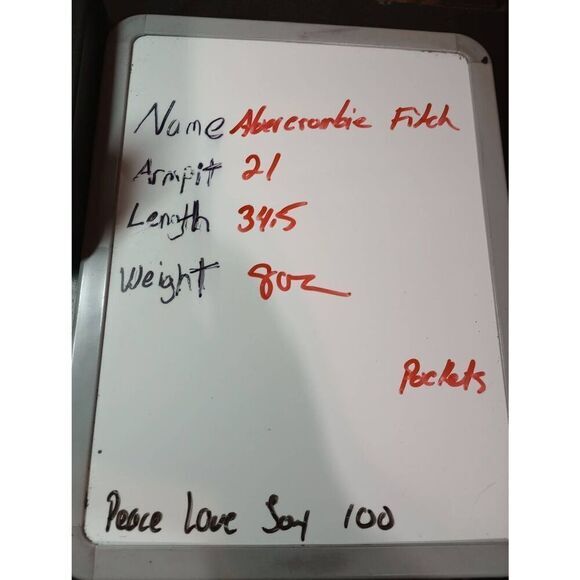 Name Abercrombie Fitch
Armpit 21
Length 34.5
Weight 8oz
Pockets
Peace Love Soy 100